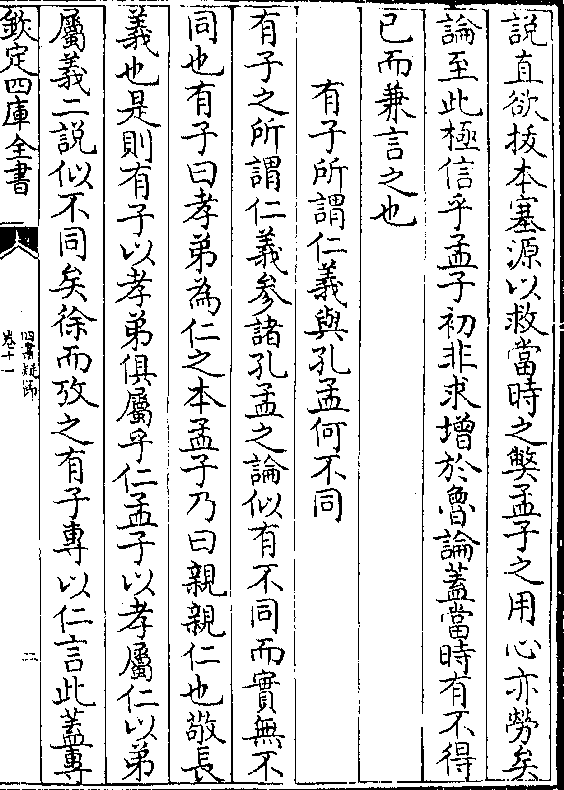 說直欲拔本塞源以救當時之弊孟子之用心亦勞矣
論至此極信乎孟子初非求增於魯論蓋當時有不得
已而兼言之也
有子所謂仁義與孔孟何不同
有子之所謂仁義參諸孔孟之論似有不同而實無不
同也有子曰孝弟為仁之本孟子乃曰親親仁也敬長
義也是則有子以孝弟俱屬乎仁孟子以孝屬仁以弟
屬義二說似不同矣徐而攷之有子專以仁言此蓋專
欽定四庫全書
四書疑節
卷十一
二